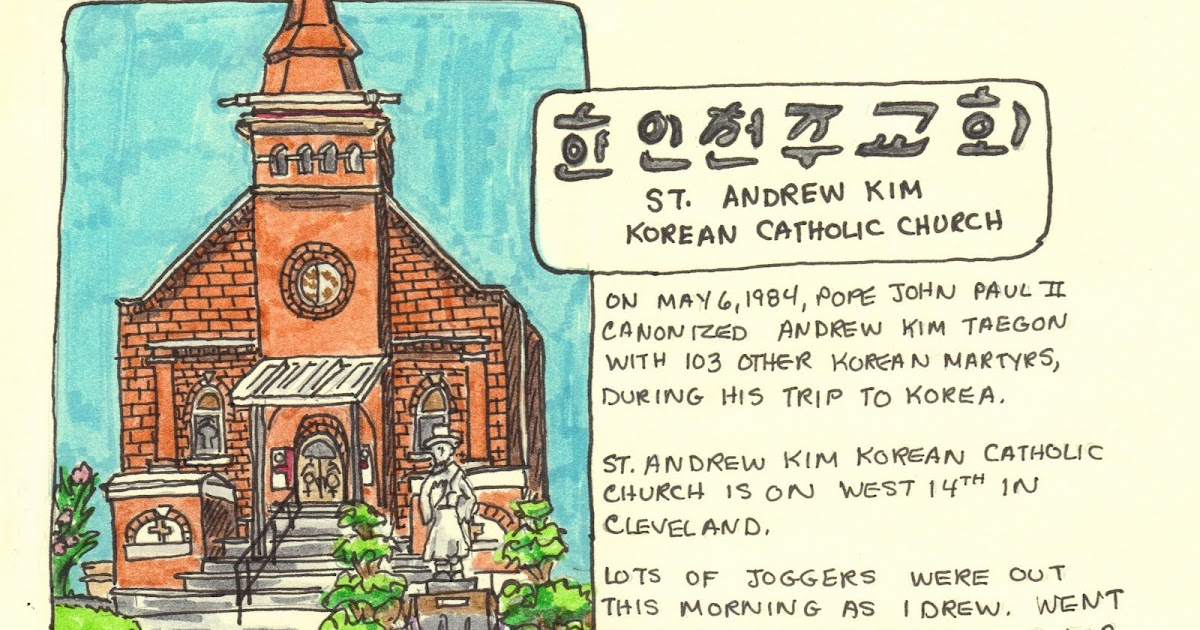 한인천주교회
ST. ANDREW KIM
KOREAN CATHOLIC CHURCH
ON MAY 6, 1984, POPE JOHN PAUL II
CANONIZED ANDREW KIM TAEGON
WITH 103 OTHER KOREAN MARTYRS,
DURING HIS TRIP TO KOREA.
ST. ANDREW KIM KOREAN CATHOLIC
CHURCH IS ON WEST 14TH IN
CLEVELAND.
LOTS OF JOGGERS WERE OUT
THIS MORNING AS I DREW. WENT